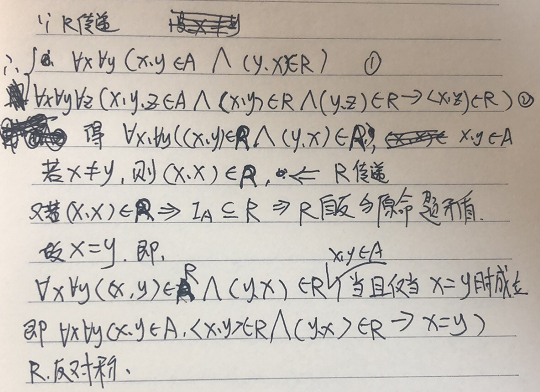 ∵ R传递
∴ ∀x∀y(x,y∈A ∧ (y,x)∈R) ①
∀x∀y∀z(x,y,z∈A ∧ <x,y>∈R ∧ (y,z)∈R → <x,z>∈R) ②
得 ∀x,∀y((x,y)∈R ∧ (y,x)∈R), x,y∈A
若x≠y, 则(x,x)∈R, ⇐ R传递
又若(x,x)∈R ⇒ I_A ⊆ R ⇒ R自反 与原命题矛盾.
故x=y. 即,
∀x∀y(<x,y>∈R ∧ (y,x)∈R) x,y∈A 当且仅当 x=y时成立
即 ∀x∀y(x,y∈A, <x,y>∈R ∧ (y,x>∈R → x=y)
R.反对称.